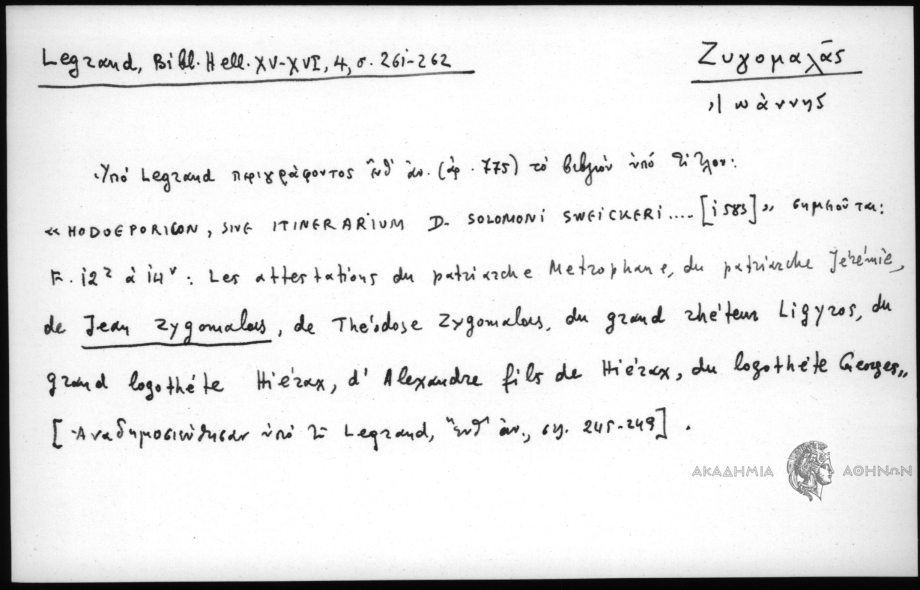 Legrand, Bibl. Hell. XV-XVI, 4, σ. 261-262
Ζυγομαλᾶς
Ἰωάννης
Ὑπό Legrand περιγράφοντος ἔνθ' ἀν. (ἀρ. 775) τό βιβλίον ὑπό τίτλον:
« HODOEPORICON, SIVE ITINERARIUM D. SOLOMONI SWEICKERI.... [1583] », σημειοῦται:
F. 12² à 14ᵛ : Les attestations du patriarche Metrophane, du patriarche Jérémie,
de Jean Zygomalas, de Théodose Zygomalas, du grand rhéteur Ligyros, du
grand logothéte Hiérax, d'Alexandre fils de Hiérax, du logothéte Georges,,
[Ἀναδημοσιεύθησαν ὑπό τοῦ Legrand, ἔνθ' ἀν., σσ. 245-249] .
ΑΚΑΔΗΜΙΑ ΑΘΗΝΩΝ